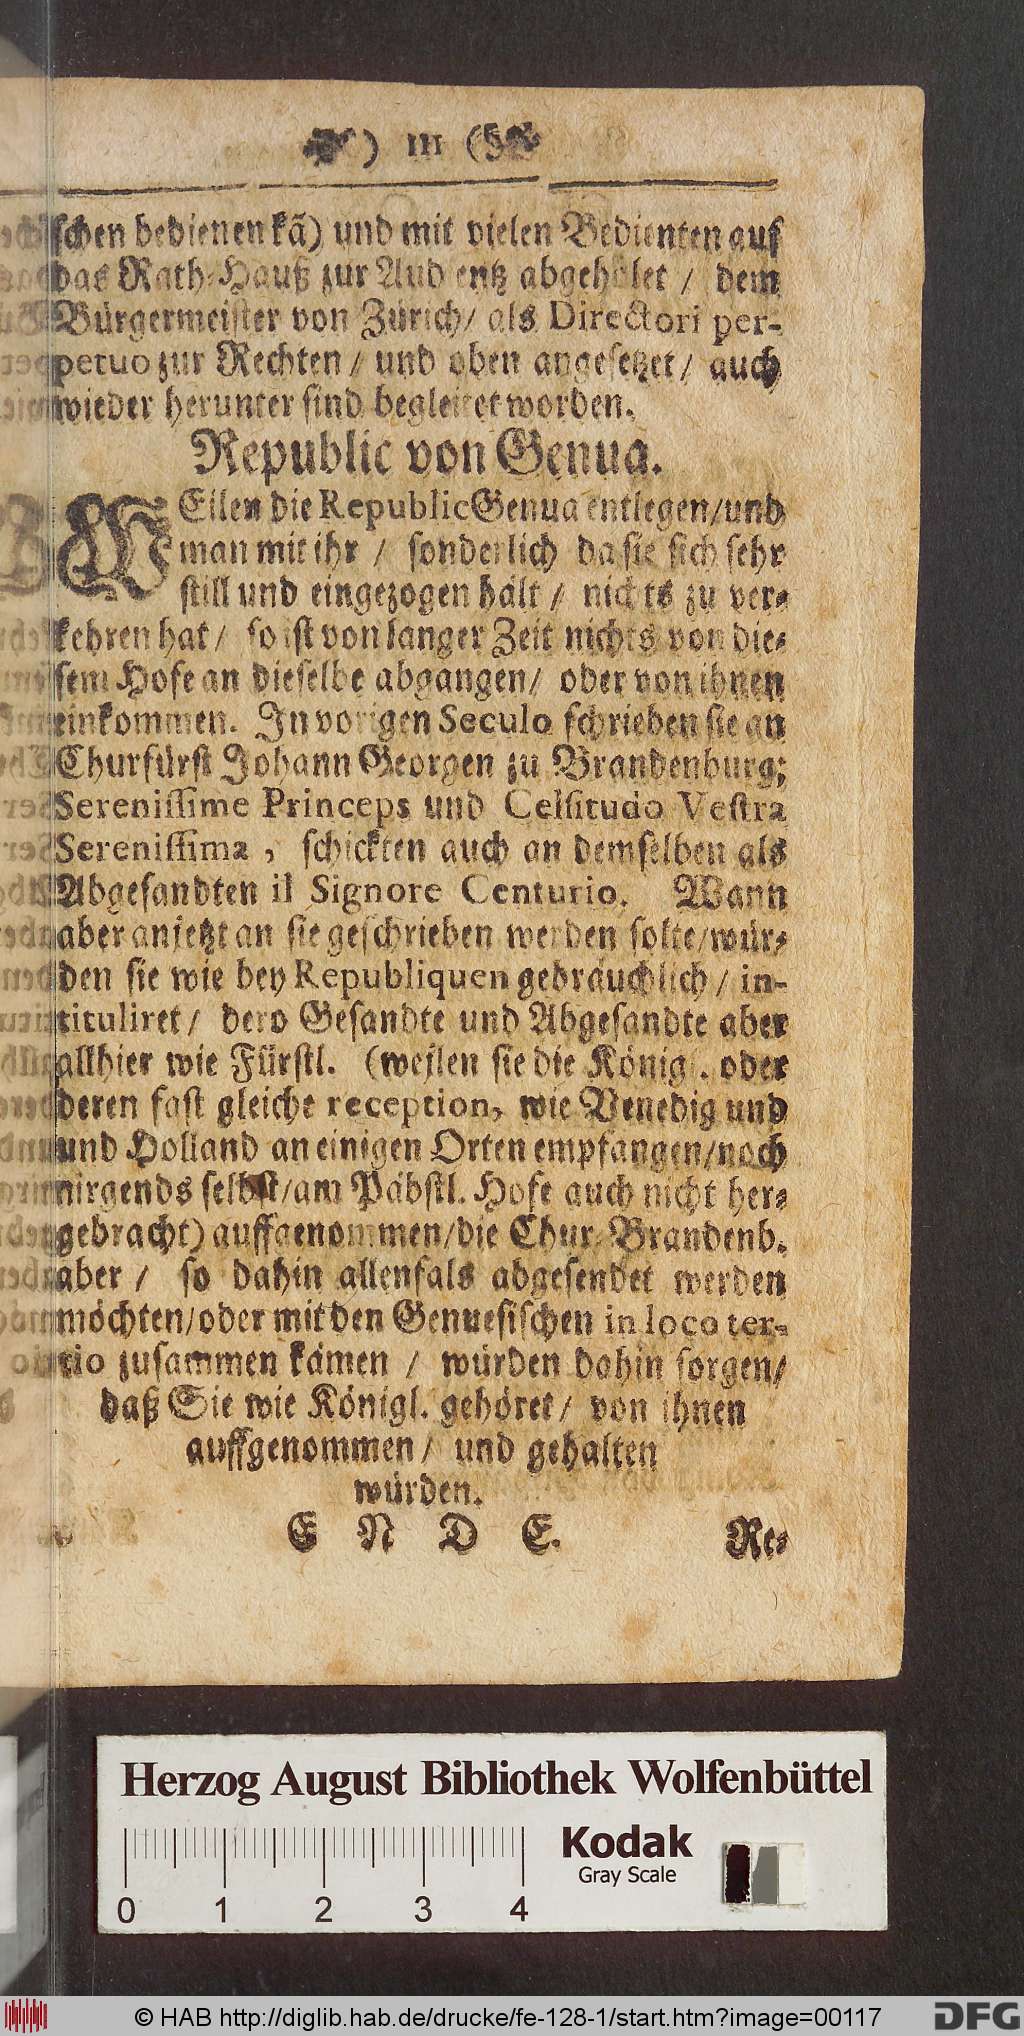 ) III (
schen bedienen kã) und mit vielen Bedienten auf
das Rath-Hauß zur Audientz abgeholet / dem
Bürgermeister von Zürich / als Directori per-
petuo zur Rechten / und oben angesetzet / auch
wieder herunter sind begleitet worden.
Republic von Genua.
WEilen die Republic Genua entlegen / und
man mit ihr / sonderlich da sie sich sehr
still und eingezogen hält / nichts zu ver-
kehren hat / so ist von langer Zeit nichts von die-
sem Hofe an dieselbe abgangen / oder von ihnen
einkommen. In vorigen Seculo schrieben sie an
Churfürst Johann Georgen zu Brandenburg;
Serenissime Princeps und Celsitudo Vestra
Serenissima, schickten auch an demselben als
Abgesandten il Signore Centurio. Wann
aber anjetzt an sie geschrieben werden solte / wür-
den sie wie bey Republiquen gebräuchlich / in-
tituliret / dero Gesandte und Abgesandte aber
allhier wie Fürstl. (weilen sie die Königl. oder
deren fast gleiche reception, wie Venedig und
und Holland an einigen Orten empfangen / noch
nirgends selbst / am Päbstl. Hofe auch nicht her-
gebracht) auffgenommen / die Chur-Brandenb.
aber / so dahin allenfals abgesendet werden
möchten / oder mit den Genuesischen in loco ter-
tio zusammen kämen / würden dahin sorgen /
daß Sie wie Königl. gehöret / von ihnen
auffgenommen / und gehalten
würden.
E N D E.
Re-
Herzog August Bibliothek Wolfenbüttel
Kodak
Gray Scale
0 1 2 3 4
© HAB http://diglib.hab.de/drucke/fe-128-1/start.htm?image=00117
DFG